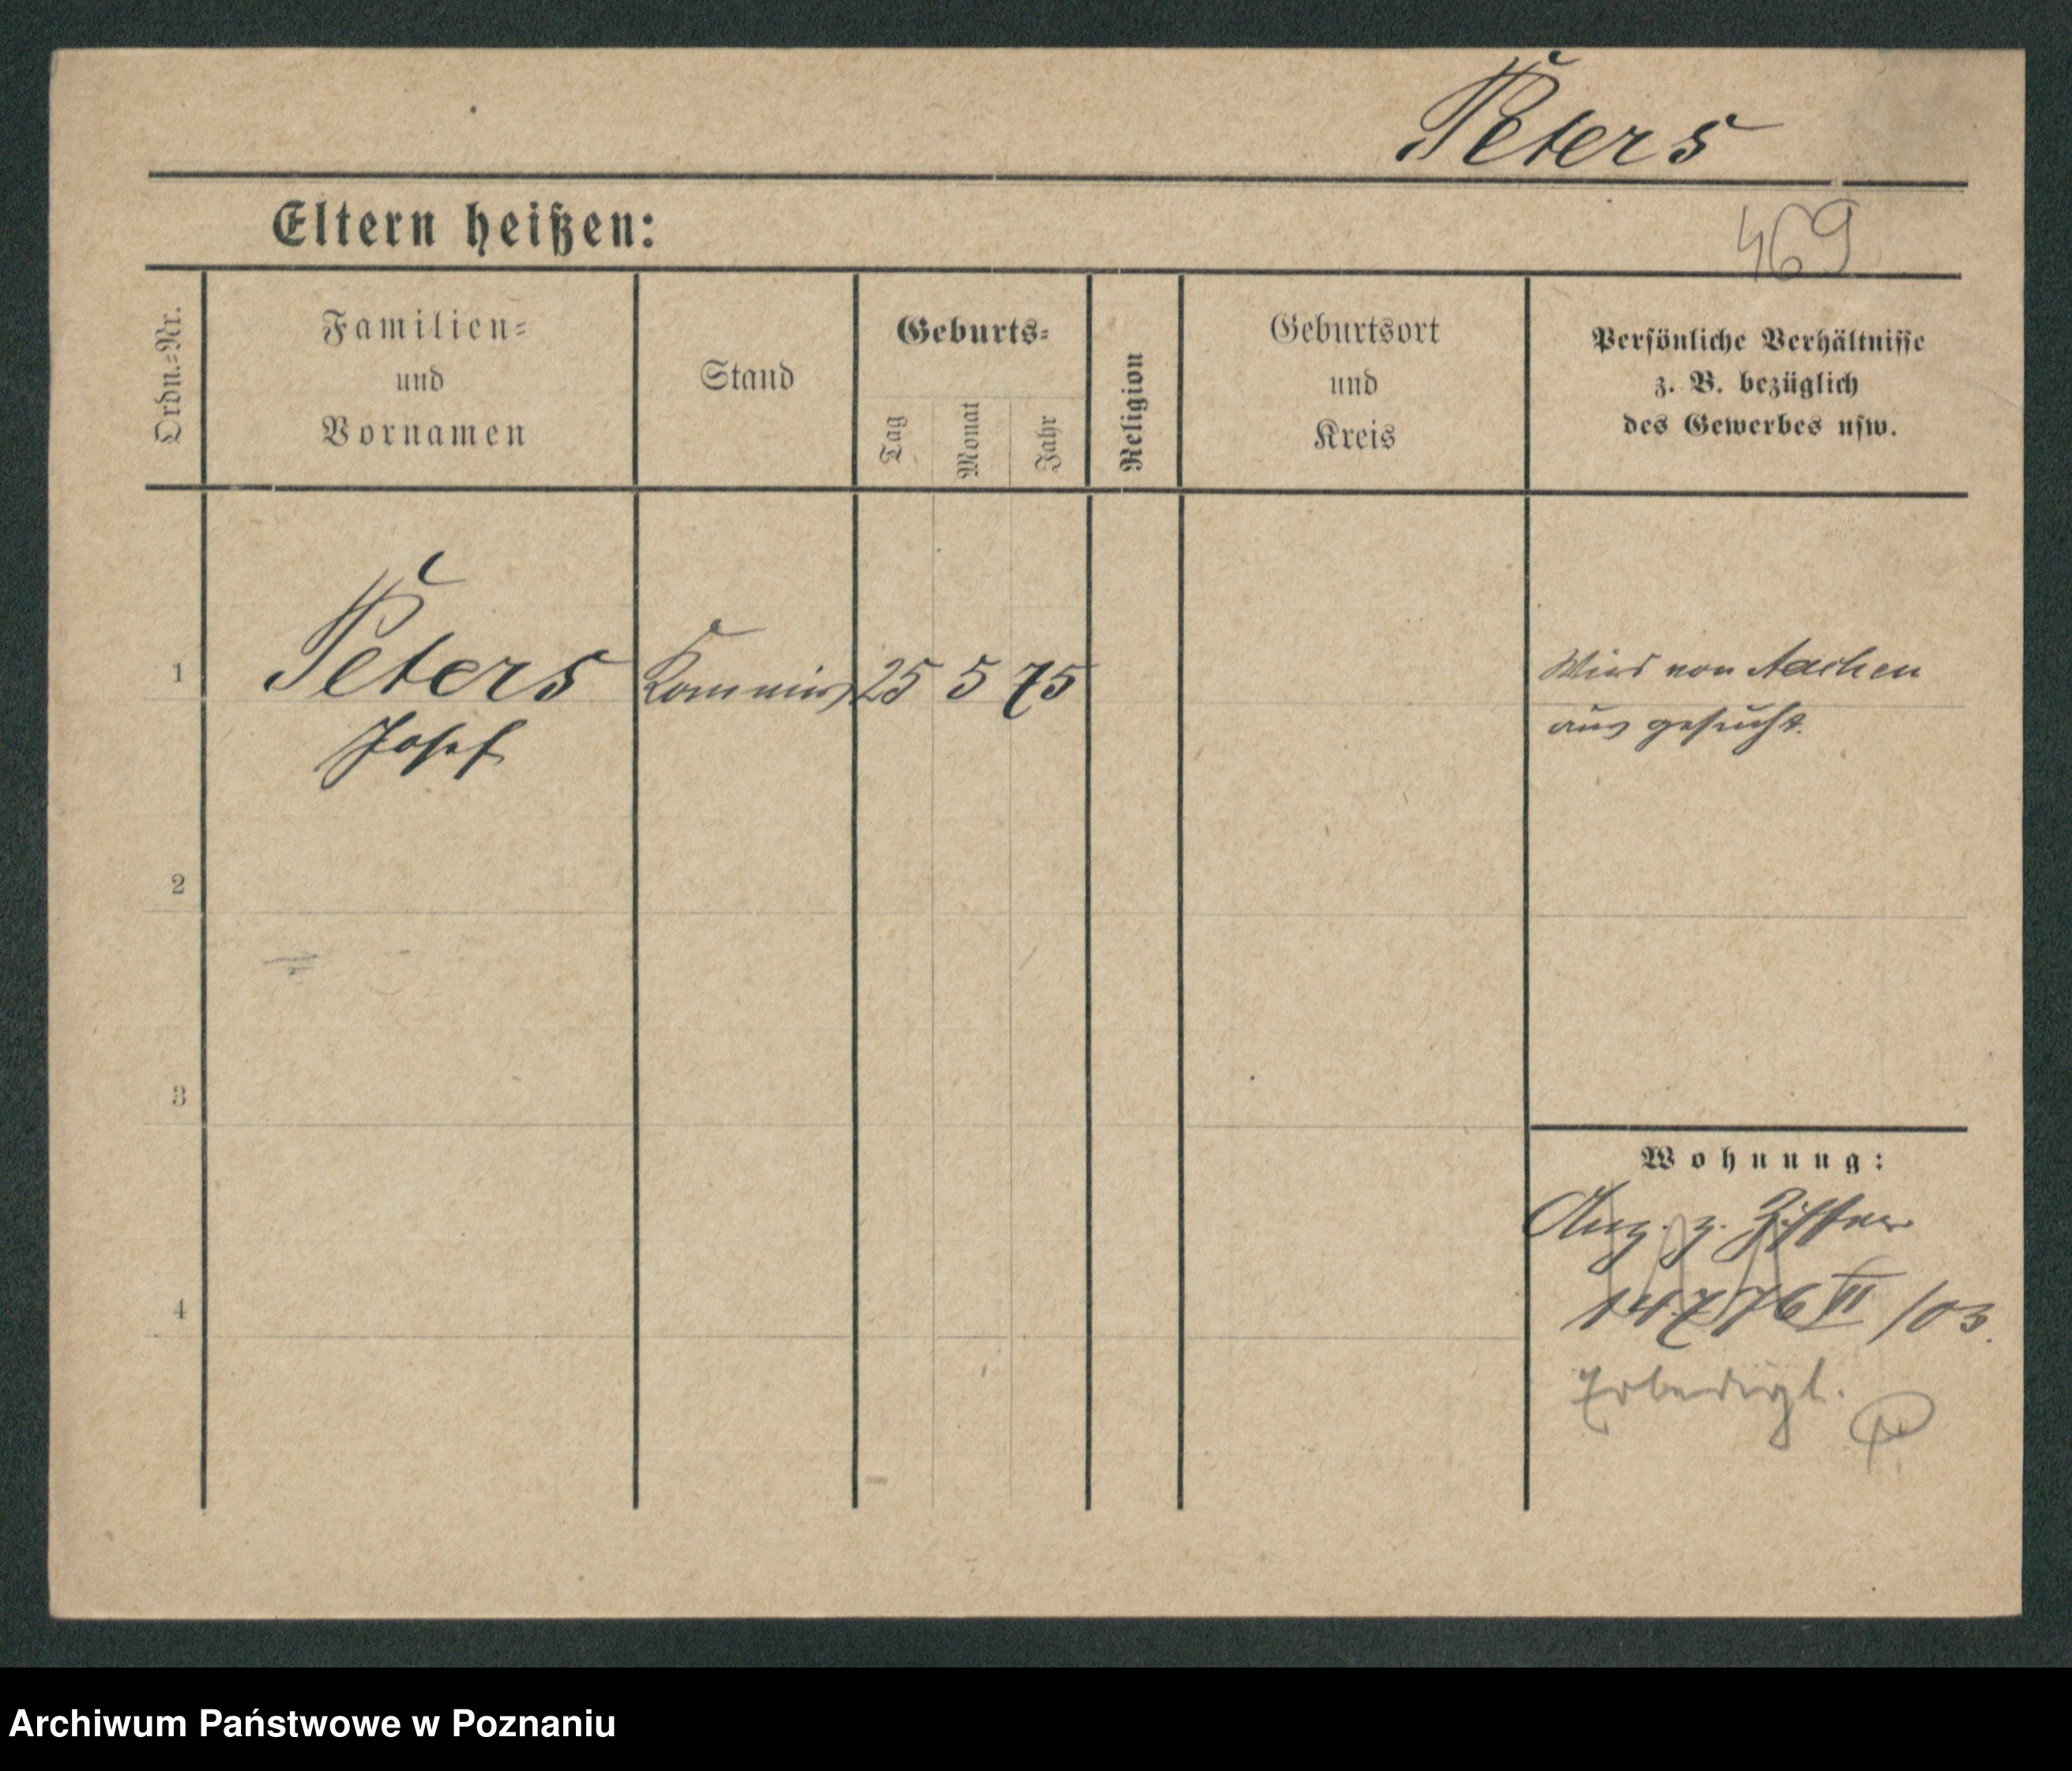 Peters
Eltern heißen:
469
Ordn.-Nr.
Familien-
und
Vornamen
Stand
Geburts-
Tag
Monat
Jahr
Religion
Geburtsort
und
Kreis
Persönliche Verhältnisse
z. B. bezüglich
des Gewerbes usw.
1
Peters
Josef
Kommis
25 5 75
Wird von Aachen
aus gesucht.
2
3
4
Wohnung:
14776 VI /03.
Erledigt.
Archiwum Państwowe w Poznaniu